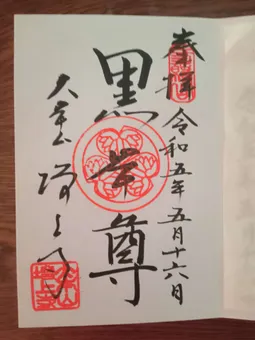 奉拝
令和五年五月十六日
黒本尊
大本山 増上寺